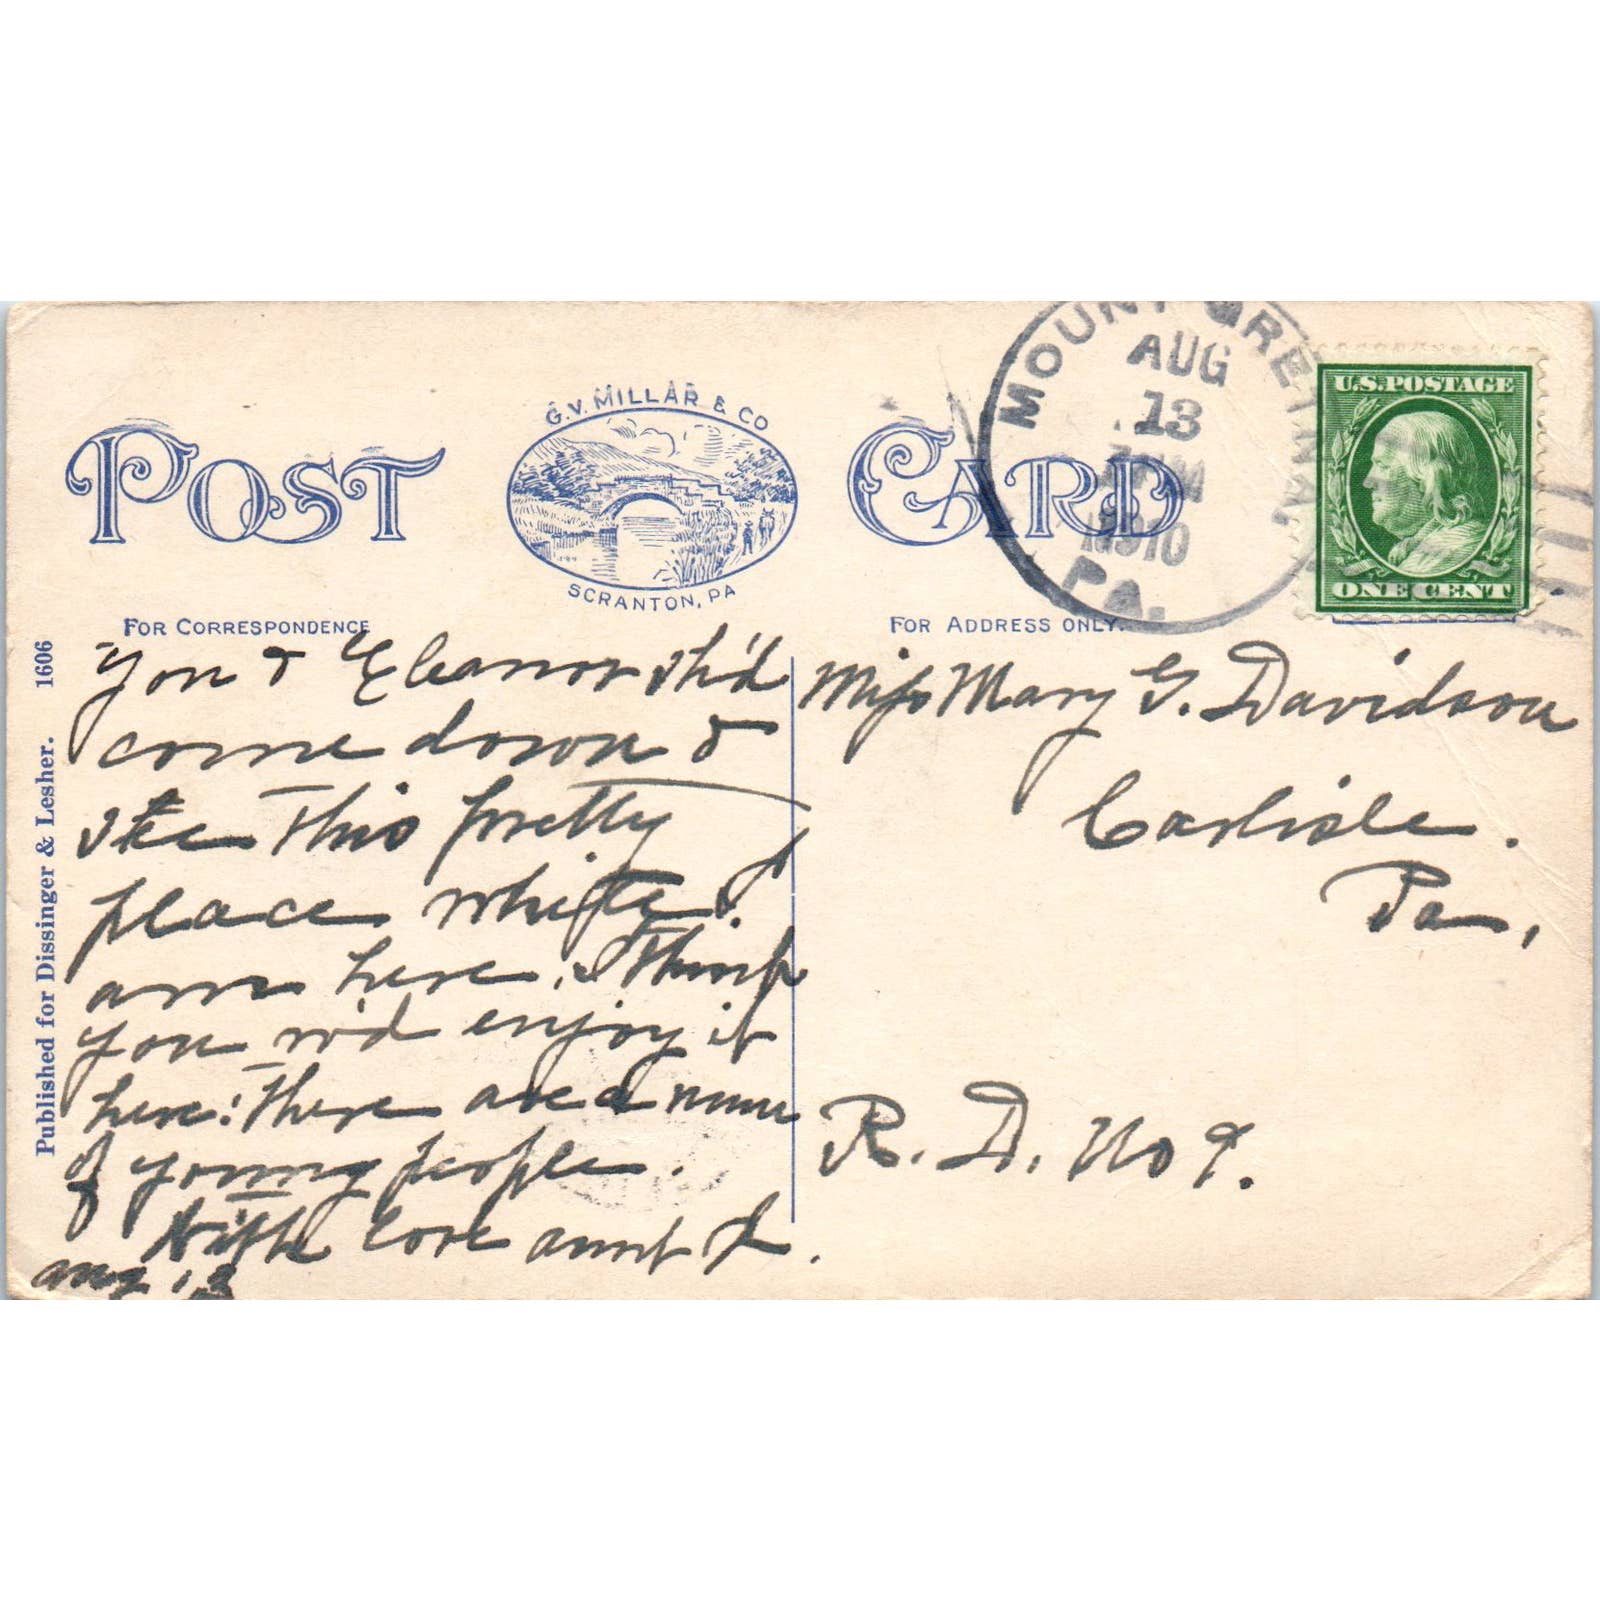 G.V. MILLAR & CO
POST CARD
SCRANTON, PA
MOUNT GRETNA,
AUG
13
1910
PA.
U.S. POSTAGE
ONE CENT
FOR CORRESPONDENCE
FOR ADDRESS ONLY.
Published for Dissinger & Lesher. 1606
You & Eleanor sh'd
come down &
see this pretty
place while I
am here. I think
you w'd enjoy it
here. There are a num
of young people.
With love aunt L.
Aug 13
Miss Mary G. Davidson
Carlisle.
Pa,
R. D. No 9.